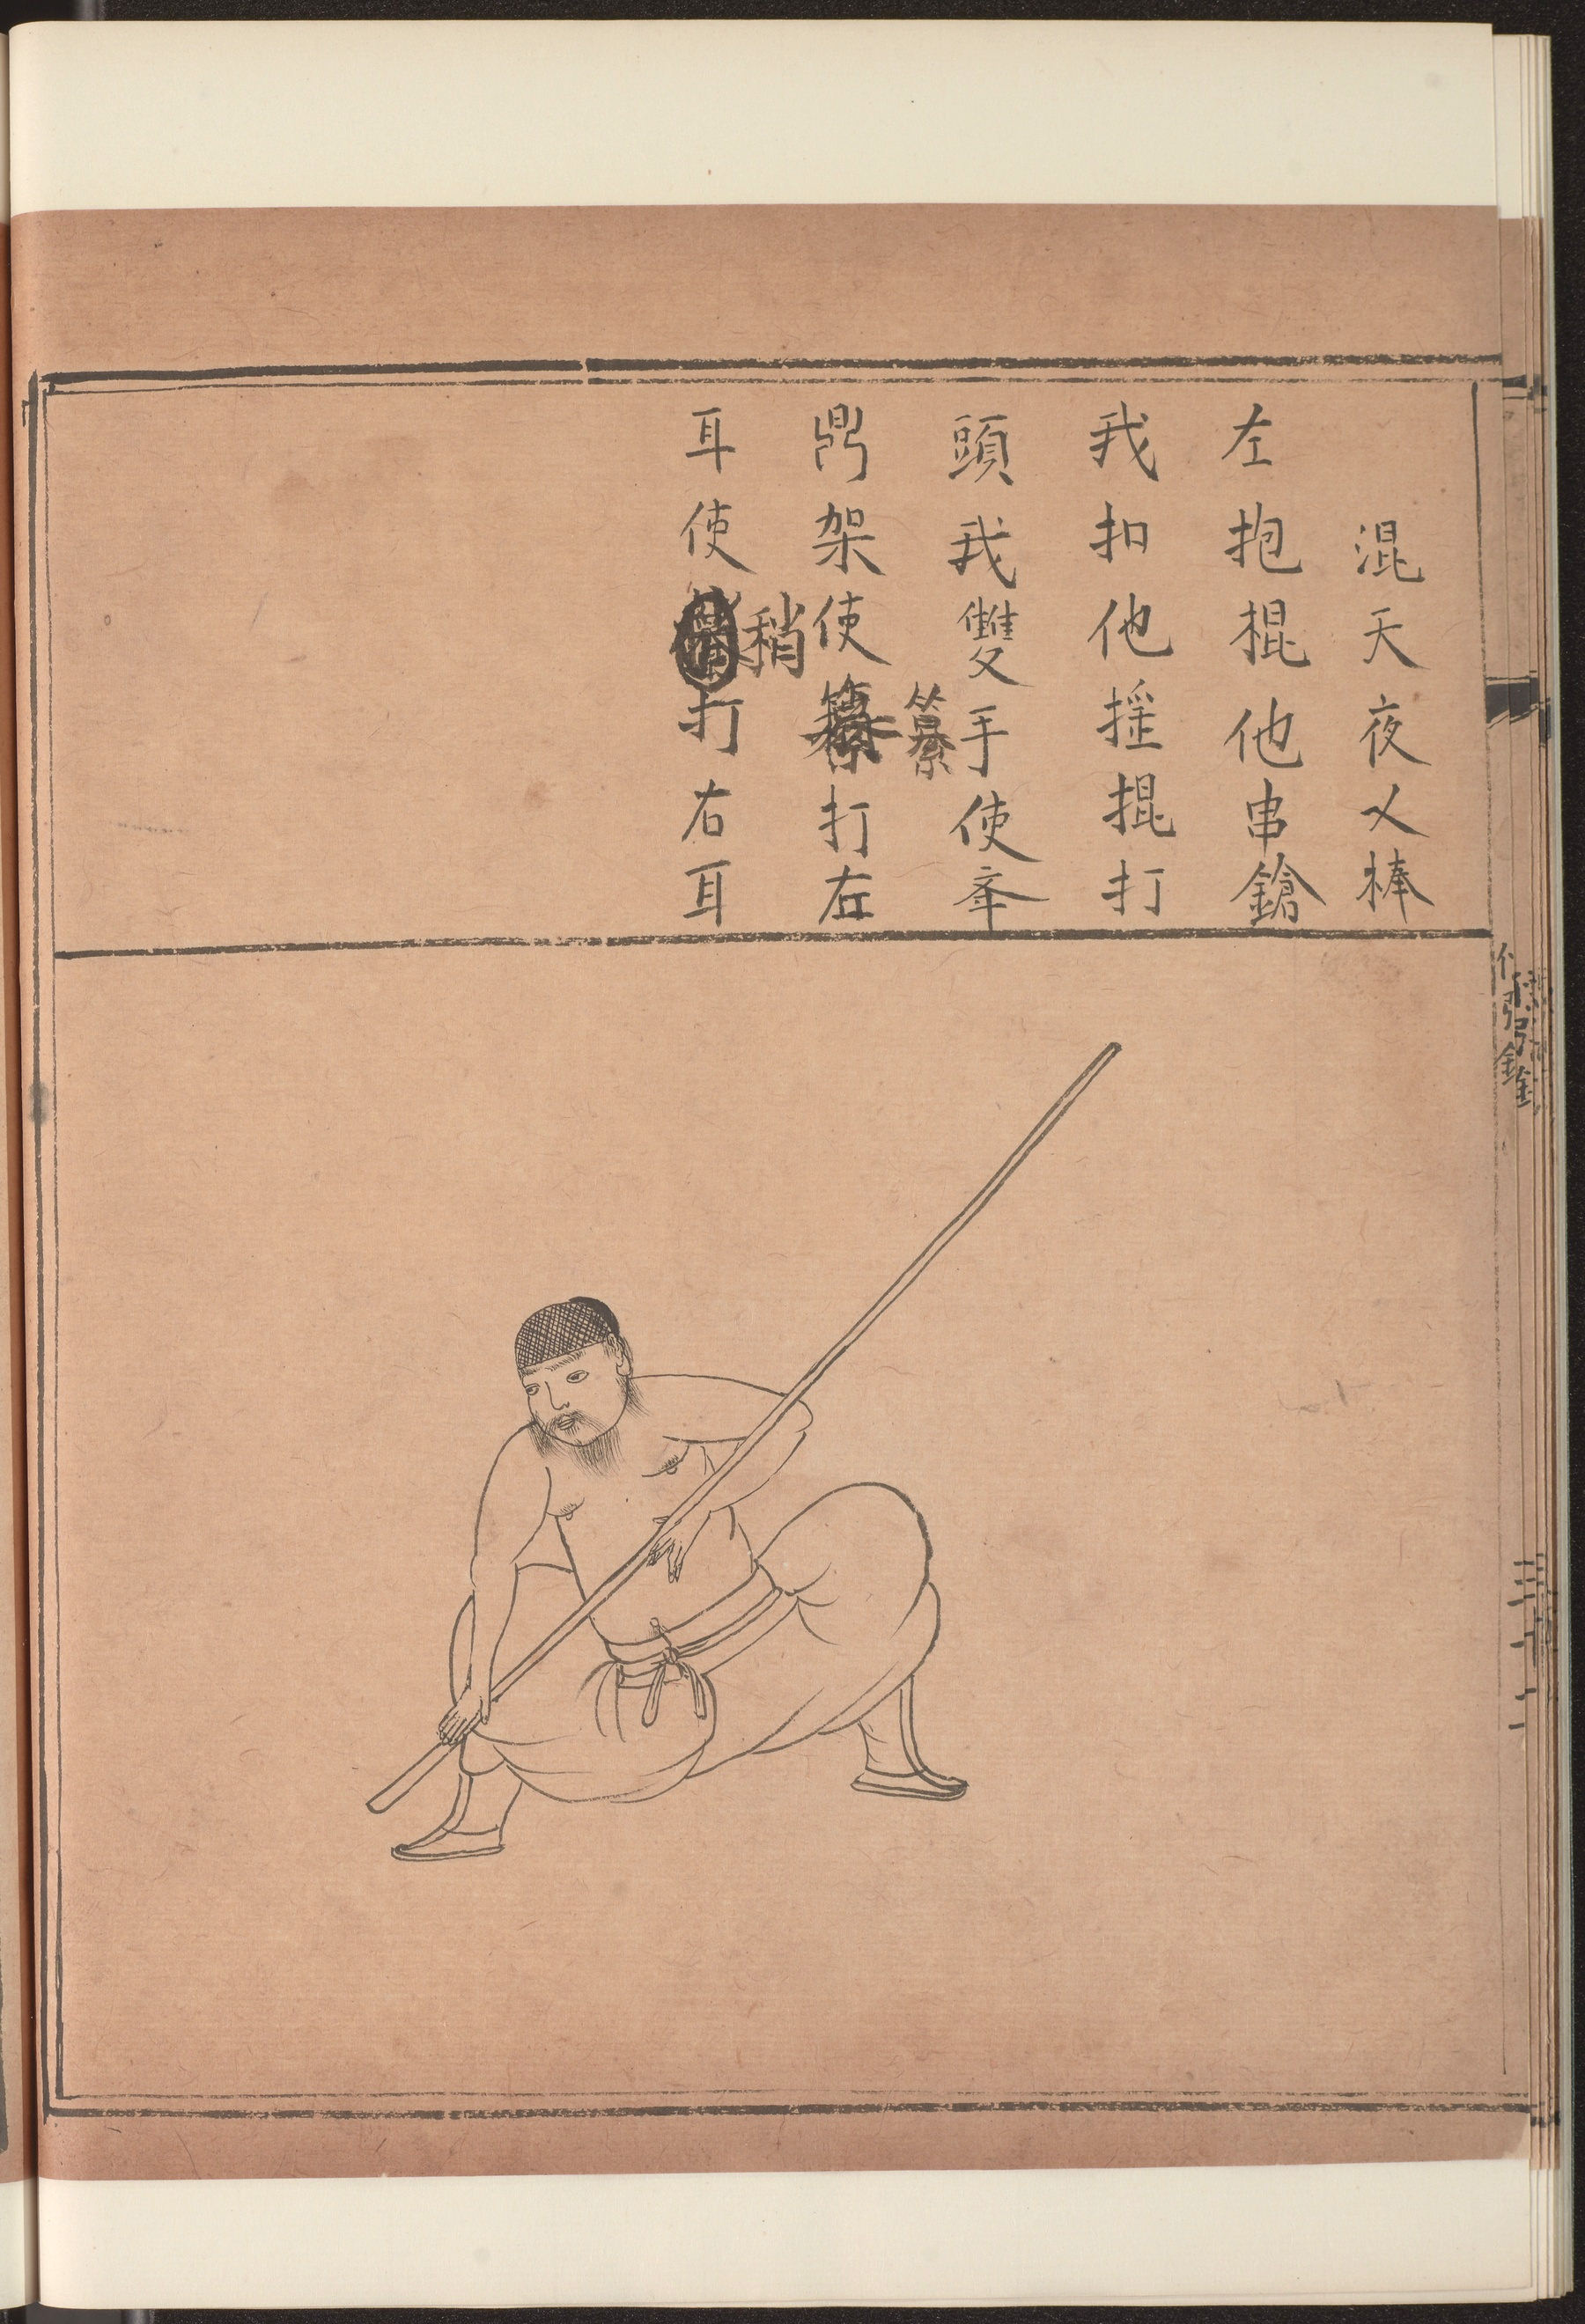 混天夜乂棒
左抱棍他串鎗
我扣他摇掍打
頭我雙手使牵
鼎架使纂打左
耳使稍打右耳
三十二